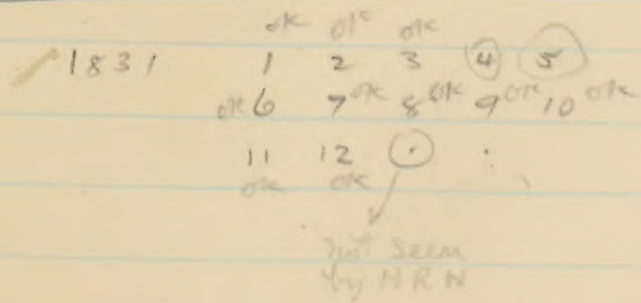 ok ok ok
1831 1 2 3 4 5
ok 6 7 ok 8 ok 9 ok 10 ok
11 12 . .
ok ok
not seen
by HRN